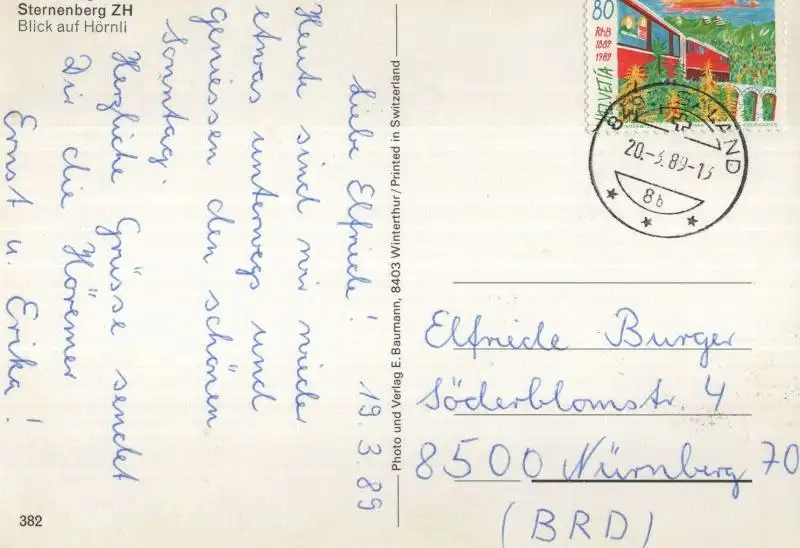 Sternenberg ZH
Blick auf Hörnli
19.3.89
Liebe Elfriede!
Heute sind wir wieder
etwas unterwegs und
geniessen den schönen
Sonntag.
Herzliche Grüsse sendet
Dir die
Ernst u. Erika!
382
Photo und Verlag E. Baumann, 8403 Winterthur/Printed in Switzerland
80
RhB
1889
1989
HELVETIA
20.-3.89-13
8b
Elfriede Burger
Söderblomstr. 4
8500 Nürnberg 70
(BRD)